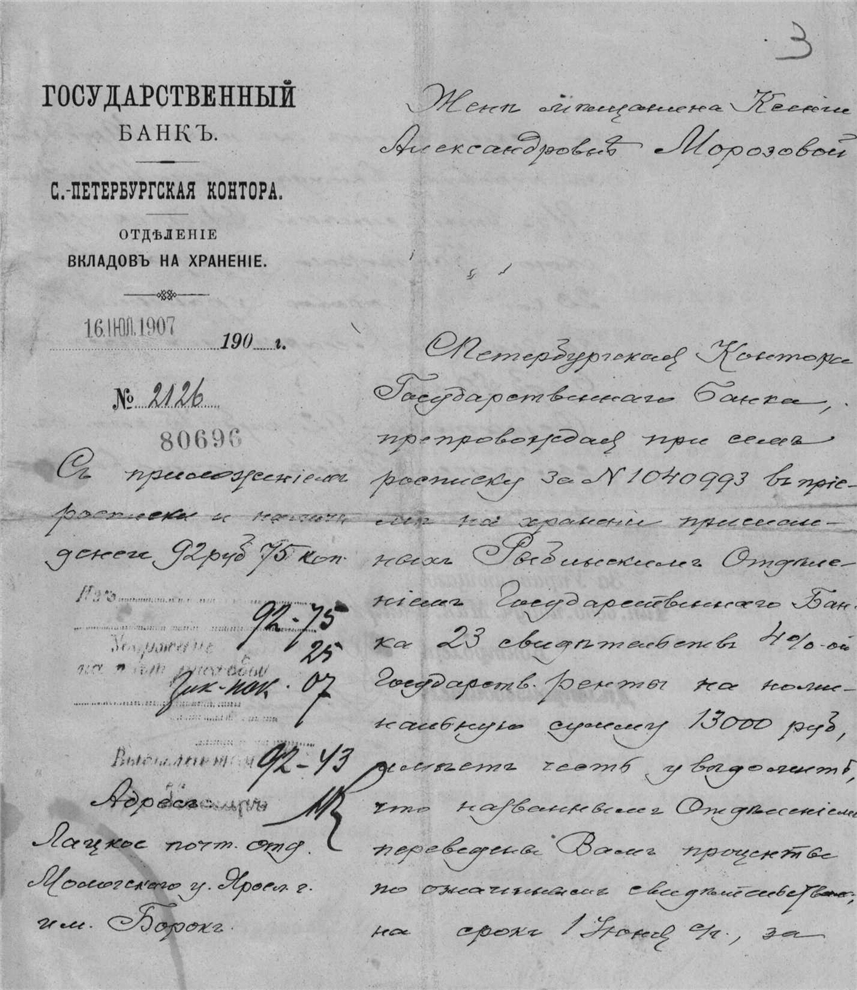 3
ГОСУДАРСТВЕННЫЙ
БАНКЪ.
С.-ПЕТЕРБУРГСКАЯ КОНТОРА.
ОТДѢЛЕНІЕ
ВКЛАДОВЪ НА ХРАНЕНІЕ.
16.ІЮЛ.1907
190 г.
№ 2126
80696
Съ приложеніемъ
росписки и
денегъ 92 руб 75 коп.
92-75
Удержано 25
на
07
92-43
Адресъ
Лацкое почт. отд.
Мологскаго у. Яросл. г.
им. Борокъ.
Женѣ мѣщанина Ксеніи
Александровнѣ Морозовой
С Петербургская Контора
Государственнаго Банка,
препровождая при семъ
росписку за N 1040993 въ пріе-
мѣ на храненіе прислан-
ныхъ Рыбинскимъ Отдѣле-
ніемъ Государственнаго Бан-
ка 23 свидѣтельствъ 4%-ой
Государств. ренты на номи-
нальную сумму 13000 руб,
имѣетъ честь увѣдомить,
что названнымъ Отдѣленіемъ
переведены Вамъ проценты
по означеннымъ свидѣтельствамъ,
на срокъ 1 Іюня с/г., за